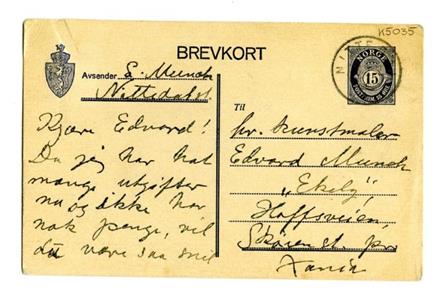 K5035
BREVKORT
NITTE
NORGE
15
Avsender E. Munch
Nittedal st.
Kjære Edvard!
Da jeg har hat
mange utgifter
nu og ikke har
nok penge, vil
du være saa snil
Til
hr. kunstmaler
Edvard Munch
"Ekely",
Hoffsveien,
Skøien st. pr
Xania